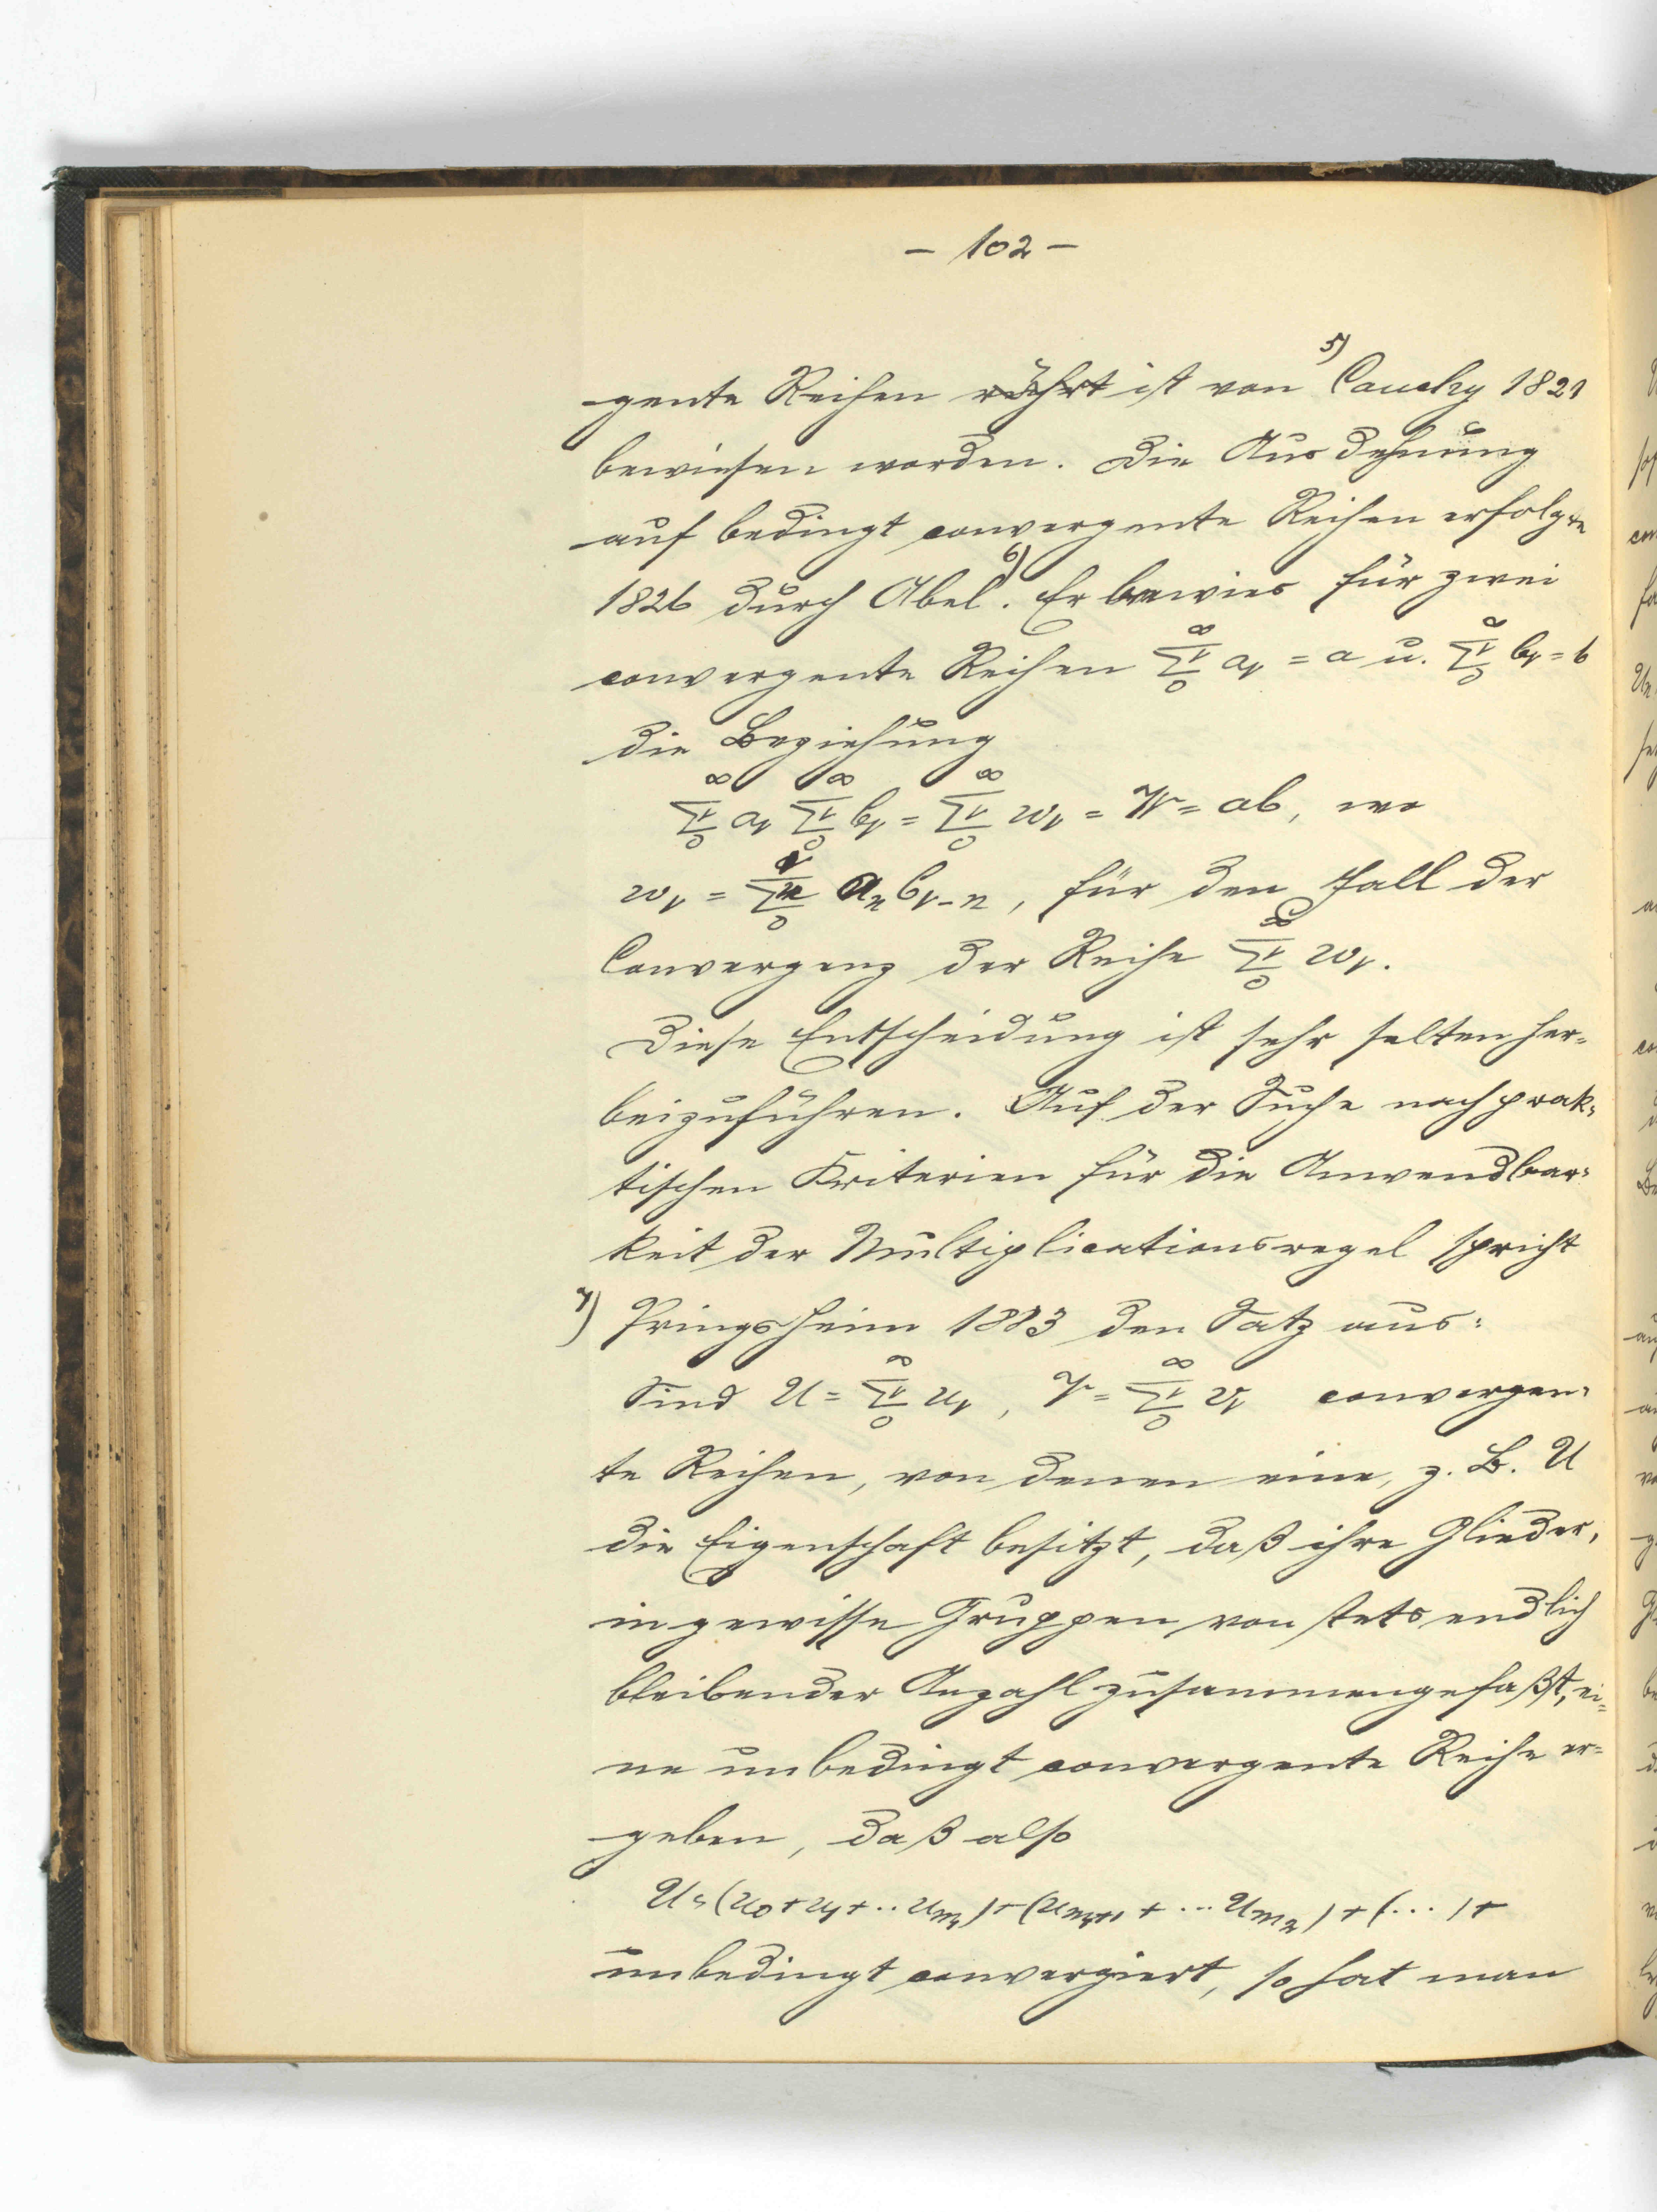 – 102 –
gente Reihen rührt ist von ⁵⁾ Cauchy 1821
bewiesen worden. Die Ausdehnung
auf bedingt convergente Reihen erfolgte
1826 durch Abel ⁶⁾. Er bewies für zwei
convergente Reihen ∑ᵥ₀^∞ aᵥ = a u. ∑ᵥ₀^∞ bᵥ = b
die Beziehung
∑ᵥ₀^∞ aᵥ ∑ᵥ₀^∞ bᵥ = ∑ᵥ₀^∞ wᵥ = W = ab, wo
wᵥ = ∑ₙ₀^ν aₙ bᵥ₋ₙ, für den Fall der
Convergenz der Reihe ∑ᵥ₀^∞ wᵥ.
Diese Entscheidung ist sehr selten her-
beizuführen. Auf der Suche nach prak-
tischen Kriterien für die Anwendbar-
keit der Multiplicationsregel spricht
⁷⁾ Pringsheim 1883 den Satz aus:
Sind U = ∑ᵥ₀^∞ uᵥ, V = ∑ᵥ₀^∞ vᵥ convergen-
te Reihen, von denen eine, z. B. U
die Eigenschaft besitzt, daß ihre Glieder,
in gewisse Gruppen von stets endlich
bleibender Anzahl zusammengefaßt, ei-
ne unbedingt convergente Reihe er-
geben, daß also
U = (u₀ + u₁ + .. u_m₁) + (u_m₁+1 + ... u_m₂) + (...) +
unbedingt convergiert, so hat man